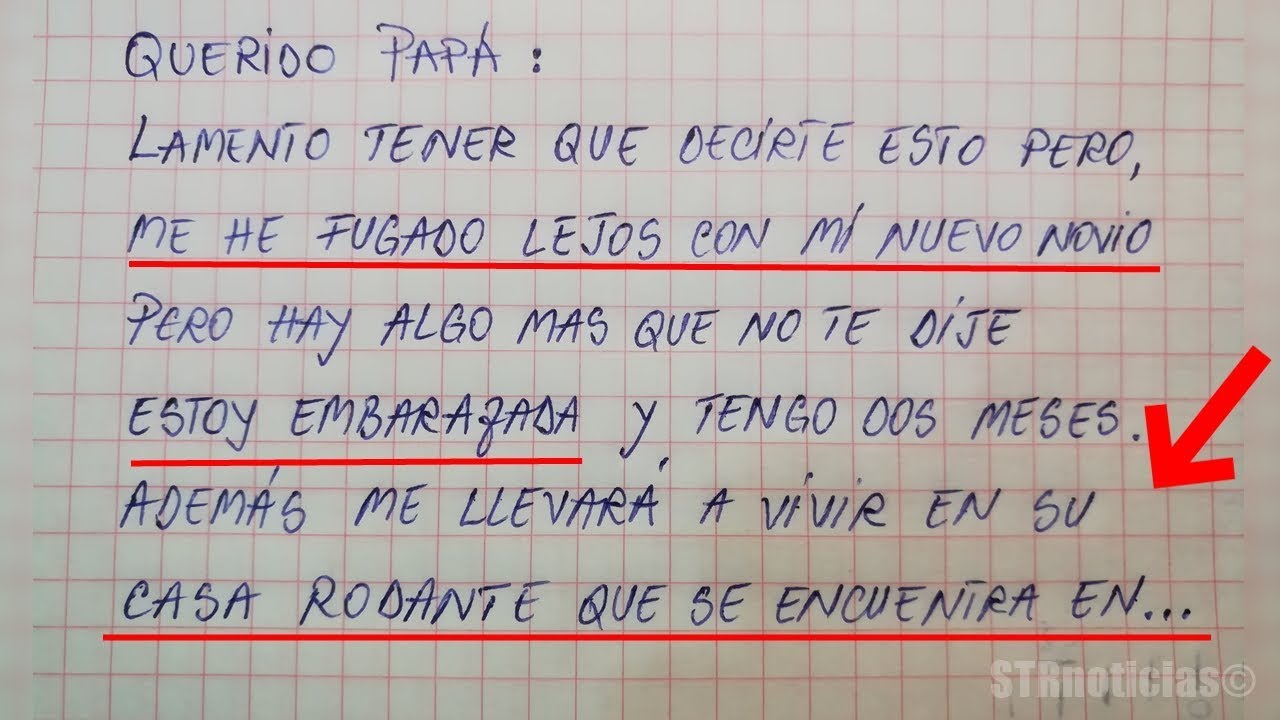 QUERIDO PAPÁ:
LAMENTO TENER QUE DECIRTE ESTO PERO,
ME HE FUGADO LEJOS CON MÍ NUEVO NOVIO
PERO HAY ALGO MAS QUE NO TE DIJE
ESTOY EMBARAZADA Y TENGO DOS MESES.
ADEMÁS ME LLEVARÁ A VIVIR EN SU
CASA RODANTE QUE SE ENCUENTRA EN...
STRnoticias©